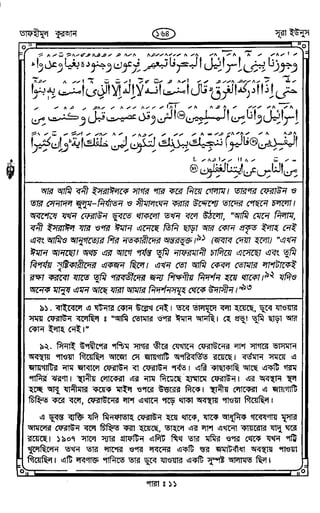 তাফহীমুল কুরআন
১৬৪
সূরা ইউনুস
وَجَاوَزْنَا بِبَنِي إِسْرَائِيلَ الْبَحْرَ فَأَتْبَعَهُمْ فِرْعَوْنُ وَجُنُودُهُ بَغْيًا وَعَدْوًا
حَتَّى إِذَا أَدْرَكَهُ الْغَرَقُ قَالَ آمَنْتُ أَنَّهُ لَا إِلَهَ إِلَّا الَّذِي آمَنَتْ بِهِ بَنُو
إِسْرَائِيلَ وَأَنَا مِنَ الْمُسْلِمِينَ آلْآنَ وَقَدْ عَصَيْتَ قَبْلُ وَكُنْتَ مِنَ
الْمُفْسِدِينَ فَالْيَوْمَ نُنَجِّيكَ بِبَدَنِكَ لِتَكُونَ لِمَنْ خَلْفَكَ آيَةً وَإِنَّ كَثِيرًا
مِنَ النَّاسِ عَنْ آيَاتِنَا لَغَافِلُونَ
আর আমি বনী ইসরাঈলকে সাগর পার করে নিয়ে গেলাম। তারপর ফেরাউন ও
তার সেনাদল জুলুম-নির্যাতন ও সীমালংঘন করার উদ্দেশ্যে তাদের পেছনে চললো।
অবশেষে যখন ফেরাউন ডুবতে থাকলো তখন বলে উঠলো, "আমি মেনে নিলাম,
বনী ইসরাঈল যার ওপর ঈমান এনেছে তিনি ছাড়া আর কোন প্রকৃত ইলাহ নেই
এবং আমিও আনুগত্যের শির নতকারীদের অন্তরভুক্ত।৯১ (জবাব দেয়া হলো) "এখন
ঈমান আনছো! অথচ এর আগে পর্যন্ত তুমি নাফরমানী চালিয়ে এসেছো এবং তুমি
বিপর্যয় সৃষ্টিকারীদের একজন ছিলে। এখন তো আমি কেবল তোমার লাশটাকেই
রক্ষা করবো যাতে তুমি পরবর্তীদের জন্য শিক্ষণীয় নিদর্শন হয়ে থাকো।৯২ যদিও
অনেক মানুষ এমন আছে যারা আমার নিদর্শনসমূহ থেকে উদাসীন।৯৩
৯১. বাইবেলে এ ঘটনার কোন উল্লেখ নেই। তবে তালমূদে বলা হয়েছে, ডুবে যাওয়ার
সময় ফেরাউন বলেছিল : "আমি তোমার ওপর ঈমান আনছি। হে প্রভু! তুমি ছাড়া আর
কোন ইলাহ নেই।"
৯২. সিনাই উপদ্বীপের পশ্চিম সাগর তীরে যেখানে ফেরাউনের লাশ সাগরে ভাসমান
অবস্থায় পাওয়া গিয়েছিল আজো সে জায়গাটি অপরিবর্তিত রয়েছে। বর্তমান সময়ে এ
জায়গাটির নাম জাবালে ফেরাউন বা ফেরাউন পর্বত। এরি কাছাকাছি আছে একটি গরম
পানির ঝরণা। স্থানীয় লোকেরা এর নাম দিয়েছে হাম্মামে ফেরাউন। এর অবস্থান স্থল
হচ্ছে আবু যানীমার কয়েক মাইল ওপরে উত্তরের দিকে। স্থানীয় লোকেরা এ জায়গাটি
চিহ্নিত করে বলে, ফেরাউনের লাশ এখানে পড়ে থাকা অবস্থায় পাওয়া গিয়েছিল।
এ ডুবন্ত ব্যক্তি যদি মিনফাতাহ ফেরাউন হয়ে থাকে, যাকে আধুনিক গবেষণায় মূসার
আমলের ফেরাউন বলে চিহ্নিত করা হয়েছে, তাহলে এর লাশ এখনো কায়রোর যাদু ঘরে
রয়েছে। ১৯০৭ সালে স্যার গ্রাফটিন এলিট স্মিথ তার মমির ওপর থেকে যখন পট্টি
খুলেছিলেন তখন তার লাশের ওপর লবণের একটি স্তর জমাটবাঁধা অবস্থায় পাওয়া
গিয়েছিল। এটি লবণাক্ত পানিতে তার ডুবে যাওয়ার একটি সুস্পষ্ট আলামত ছিল।
পারা : ১১